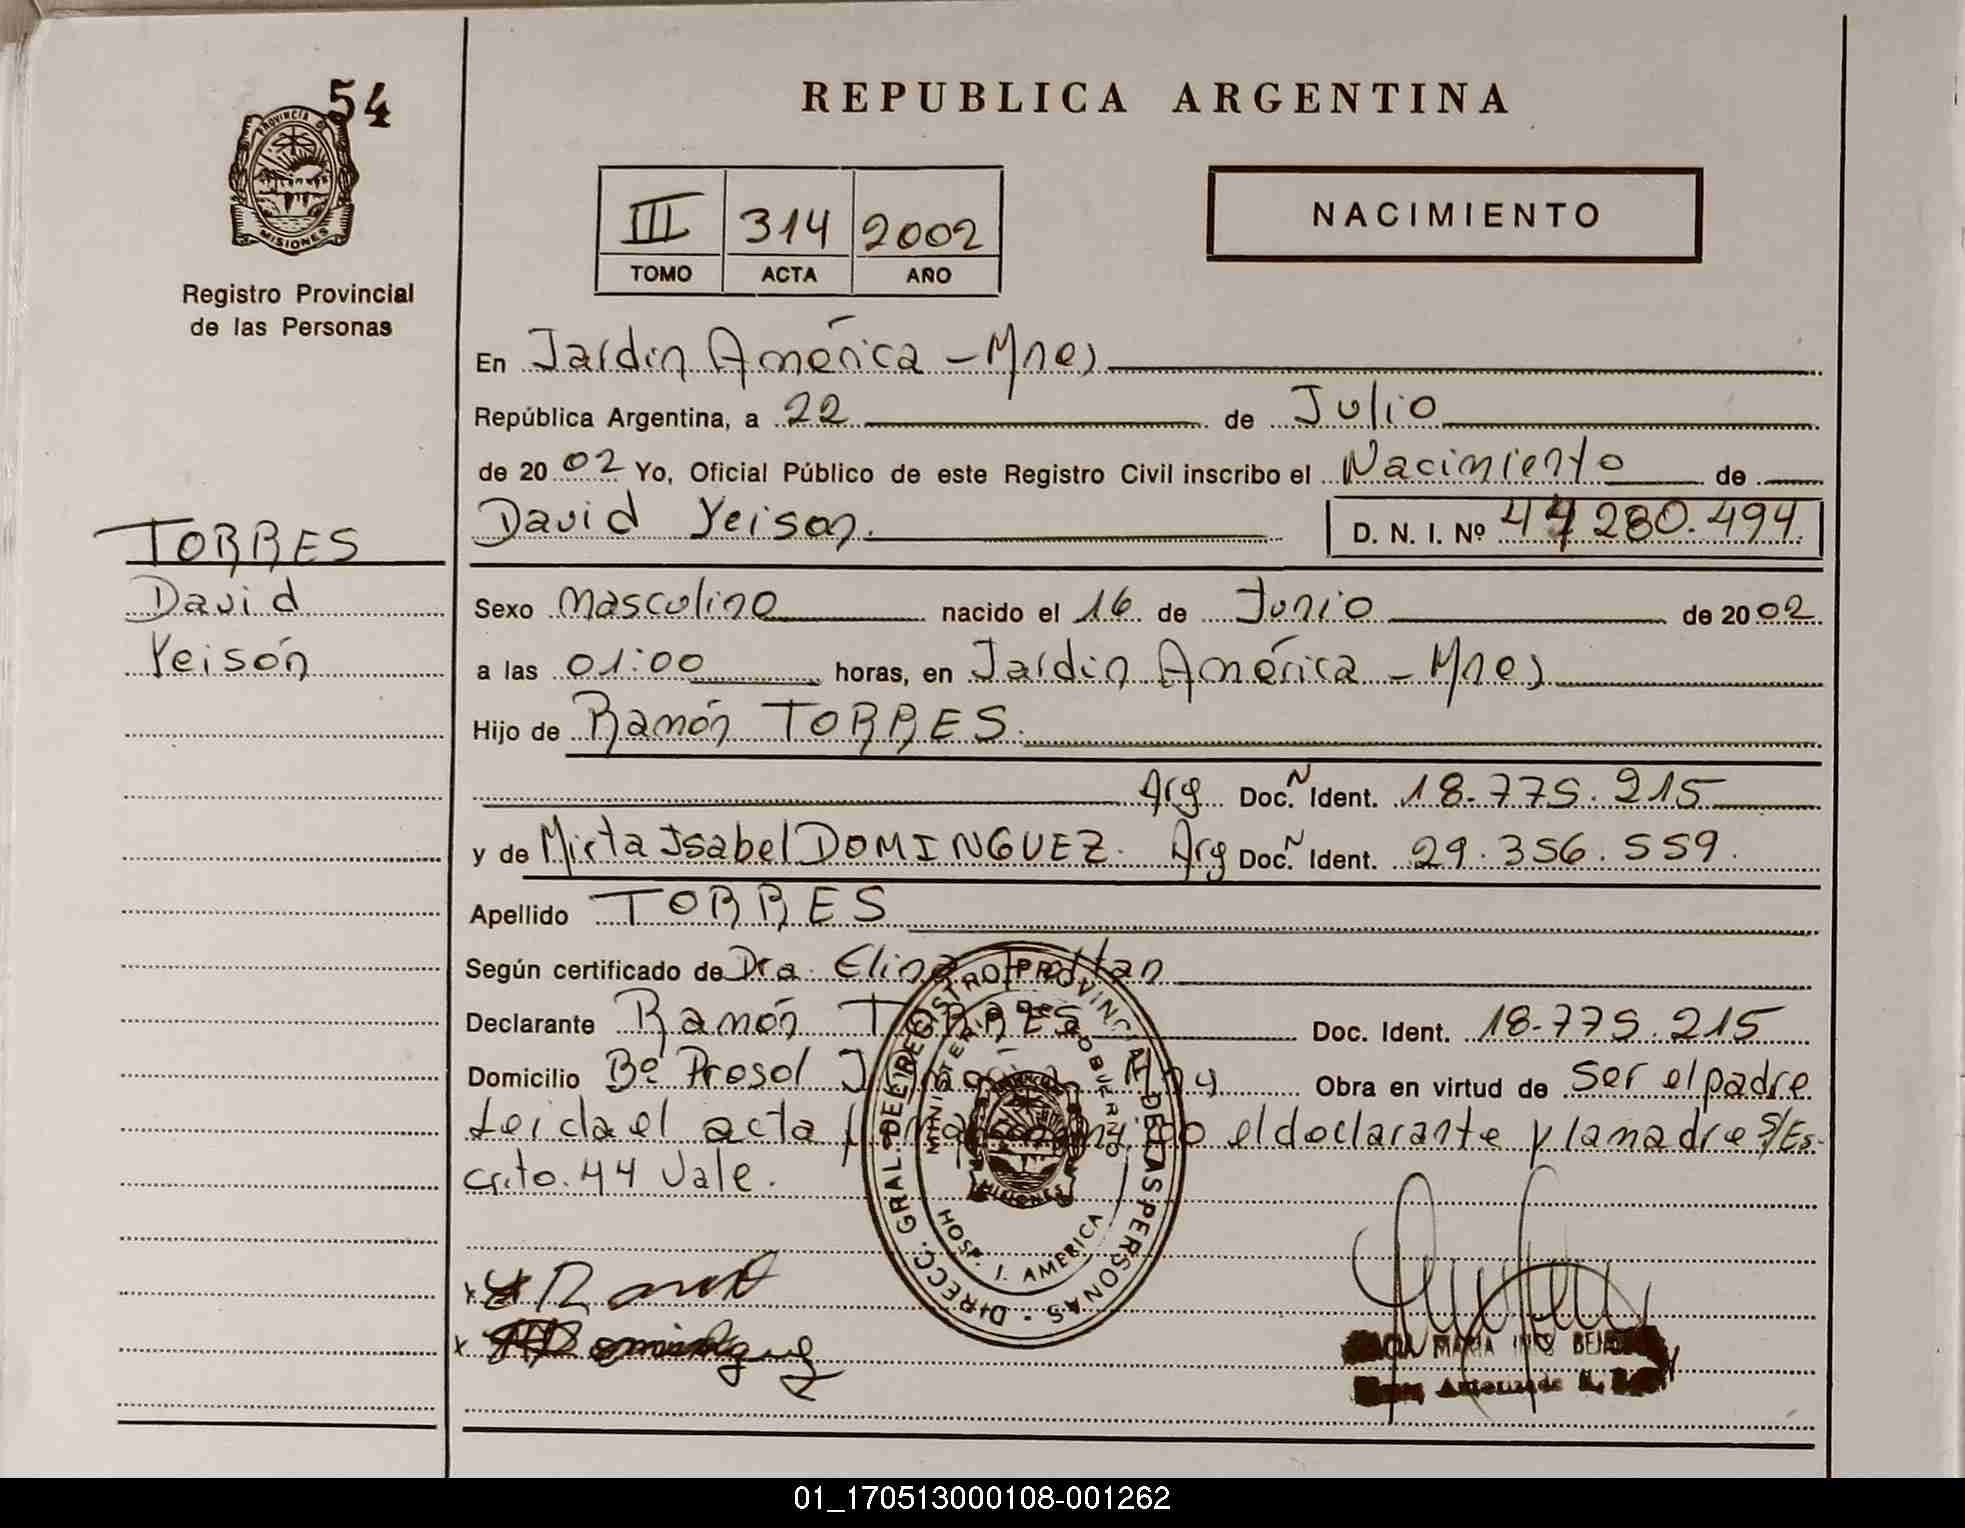 54
PROVINCIA DE
MISIONES
Registro Provincial
de las Personas
REPUBLICA ARGENTINA
III 314 2002
TOMO ACTA AÑO
NACIMIENTO
En Jardín América - Mnes
República Argentina, a 22 de Julio
de 20 02 Yo, Oficial Público de este Registro Civil inscribo el Nacimiento de
David Yeison. D. N. I. Nº 44 280.494
TORRES
David
Yeisón
Sexo Masculino nacido el 16 de Junio de 20 02
a las 01:00 horas, en Jardín América - Mnes
Hijo de Ramón TORRES.
Arg Doc. N Ident. 18.775.215
y de Mirta Isabel DOMINGUEZ. Arg Doc. N Ident. 29.356.559.
Apellido TORRES
Según certificado de Dra. Elina
Declarante Ramón TORRES Doc. Ident. 18.775.215
Domicilio Bº Prosol Obra en virtud de ser el padre
Leida el acta el declarante y la madre S/Es-
crito. 44 Vale.
DIRECC. GRAL. DEL REGISTRO PROVINCIAL DE LAS PERSONAS
MINISTERIO DE GOBIERNO
MISIONES
HOSP. J. AMERICA
MARIA INES
01_170513000108-001262